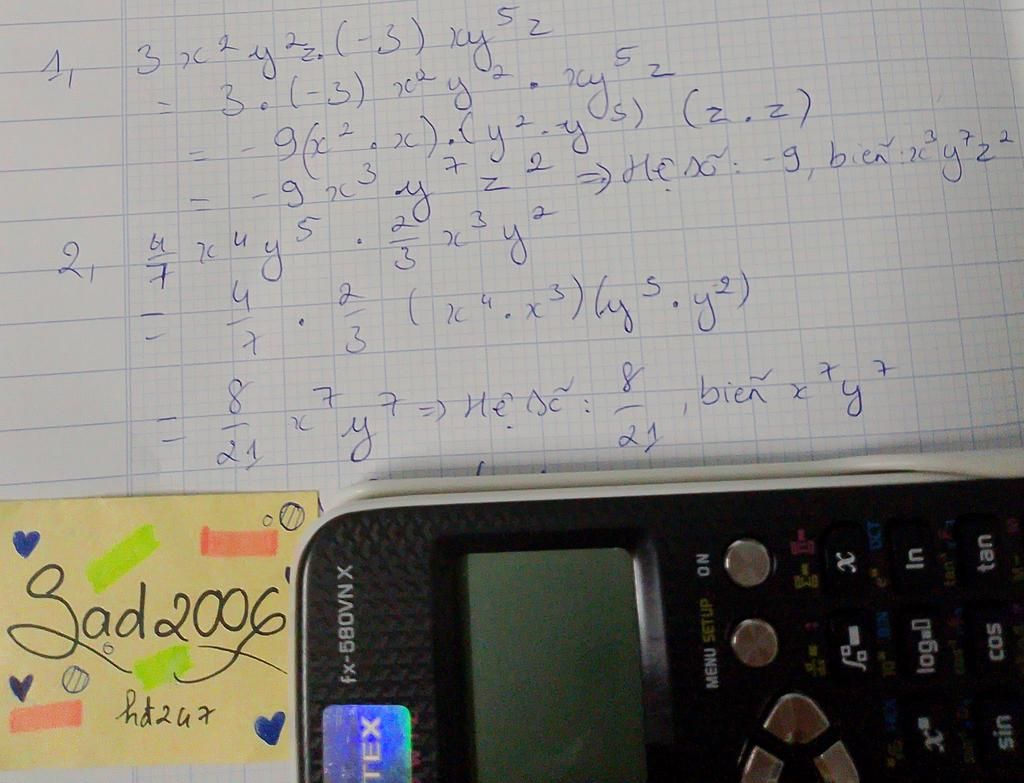 1, 3x²y²z.(-3)xy⁵z
= 3.(-3)x²y².xy⁵z
= -9(x².x).(y².y⁵)(z.z)
= -9x³y⁷z² => Hệ số: -9, biến: x³y⁷z²
2, 4/7 x⁴y⁵ . 2/3 x³y²
= 4/7 . 2/3 (x⁴.x³)(y⁵.y²)
= 8/21 x⁷y⁷ => Hệ số: 8/21, biến x⁷y⁷
Sad2006
hd247
fx-580VN X
TEX
ON
MENU SETUP
x
ln
tan
log
cos
sin